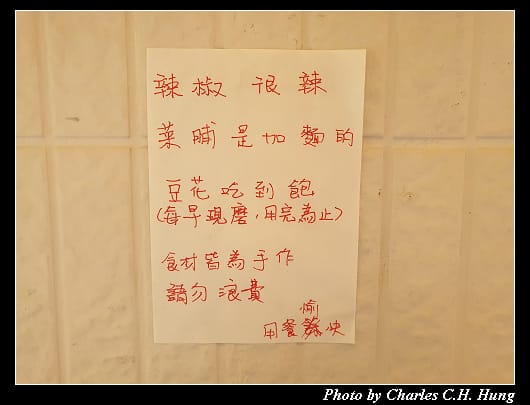 辣椒很辣
菜脯是加麵的
豆花吃到飽
(每早現磨,用完為止)
食材皆為手作
請勿浪費
用餐愉快
Photo by Charles C.H. Hung